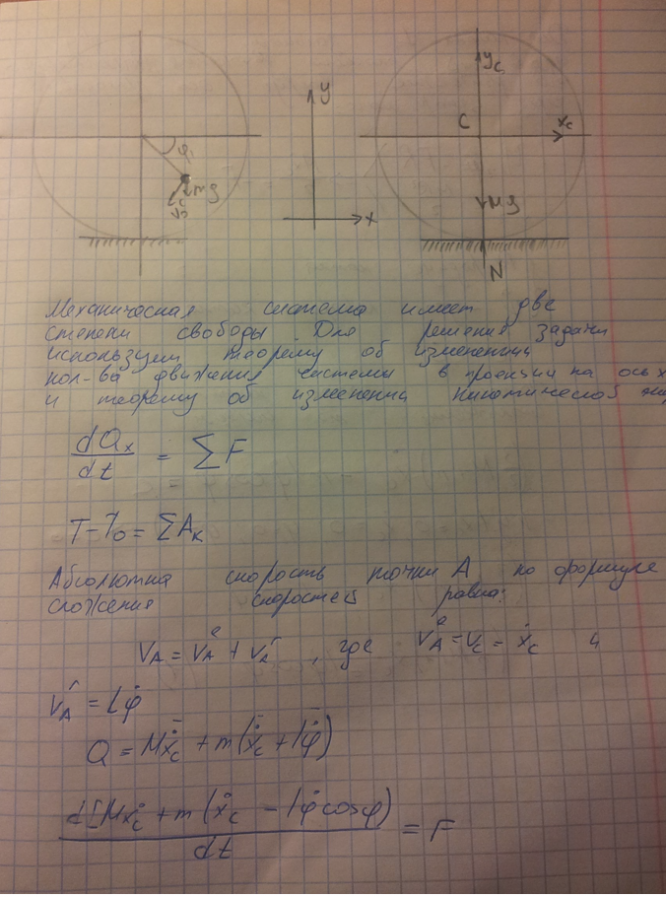 y
y_c
C
x_c
φ
mg
x
Mg
N
Механическая система имеет две
степени свободы Для решения задачи
используем теорему об изменении
кол-ва движения системы в проекции на ось х
и теорему об изменении
dQ_x/dt = ΣF
T-T_0 = ΣA_k
Абсолютна скорость точки А по формуле
сложения скоростей равна:
V_A = V_A^e + V_A^r , где V_A^e = V_C = ẋ_c и
V_A^r = lφ̇
Q = Mẋ_c + m(ẋ_c + lφ̇)
d[Mẋ_c + m(ẋ_c - lφ̇cosφ)/dt = F